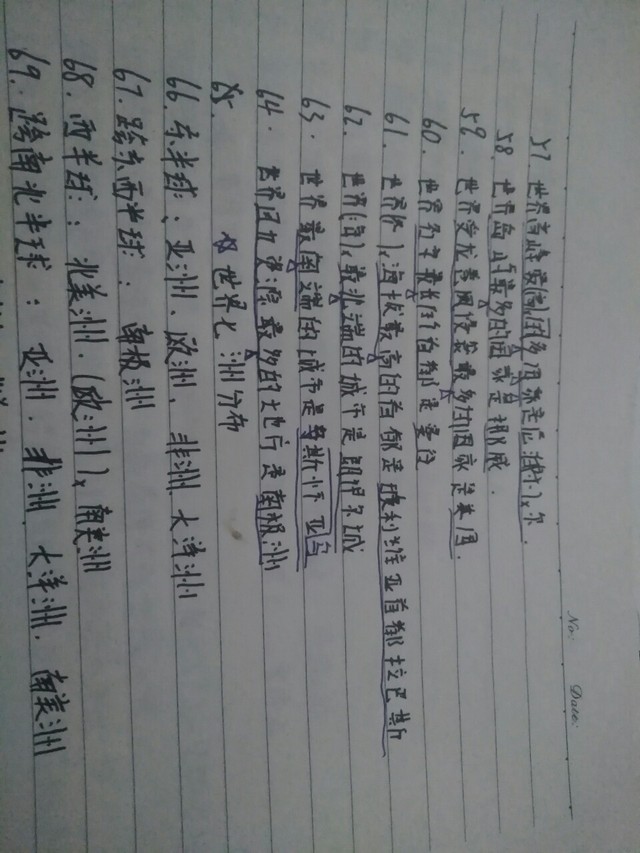 No:
Date:
57. 世界高峰最多国家是尼泊尔.
58. 世界岛屿最多的国家是挪威.
59. 世界受龙卷风侵袭最多的国家是美国.
60. 世界
61. 世界海拔最高的首都是玻利维亚首都拉巴斯
62. 世界最北端的城市是朗伊尔城
63. 世界最南端的城市是乌斯怀亚
64. 世界固力资源最多的地方是南极洲
65. 世界七洲分布
66. 东半球: 亚洲. 欧洲. 非洲. 大洋洲
67. 跨东西半球: 南极洲
68. 西半球: 北美洲. (欧洲), 南美洲
69. 跨南北半球: 亚洲. 非洲. 大洋洲. 南美洲